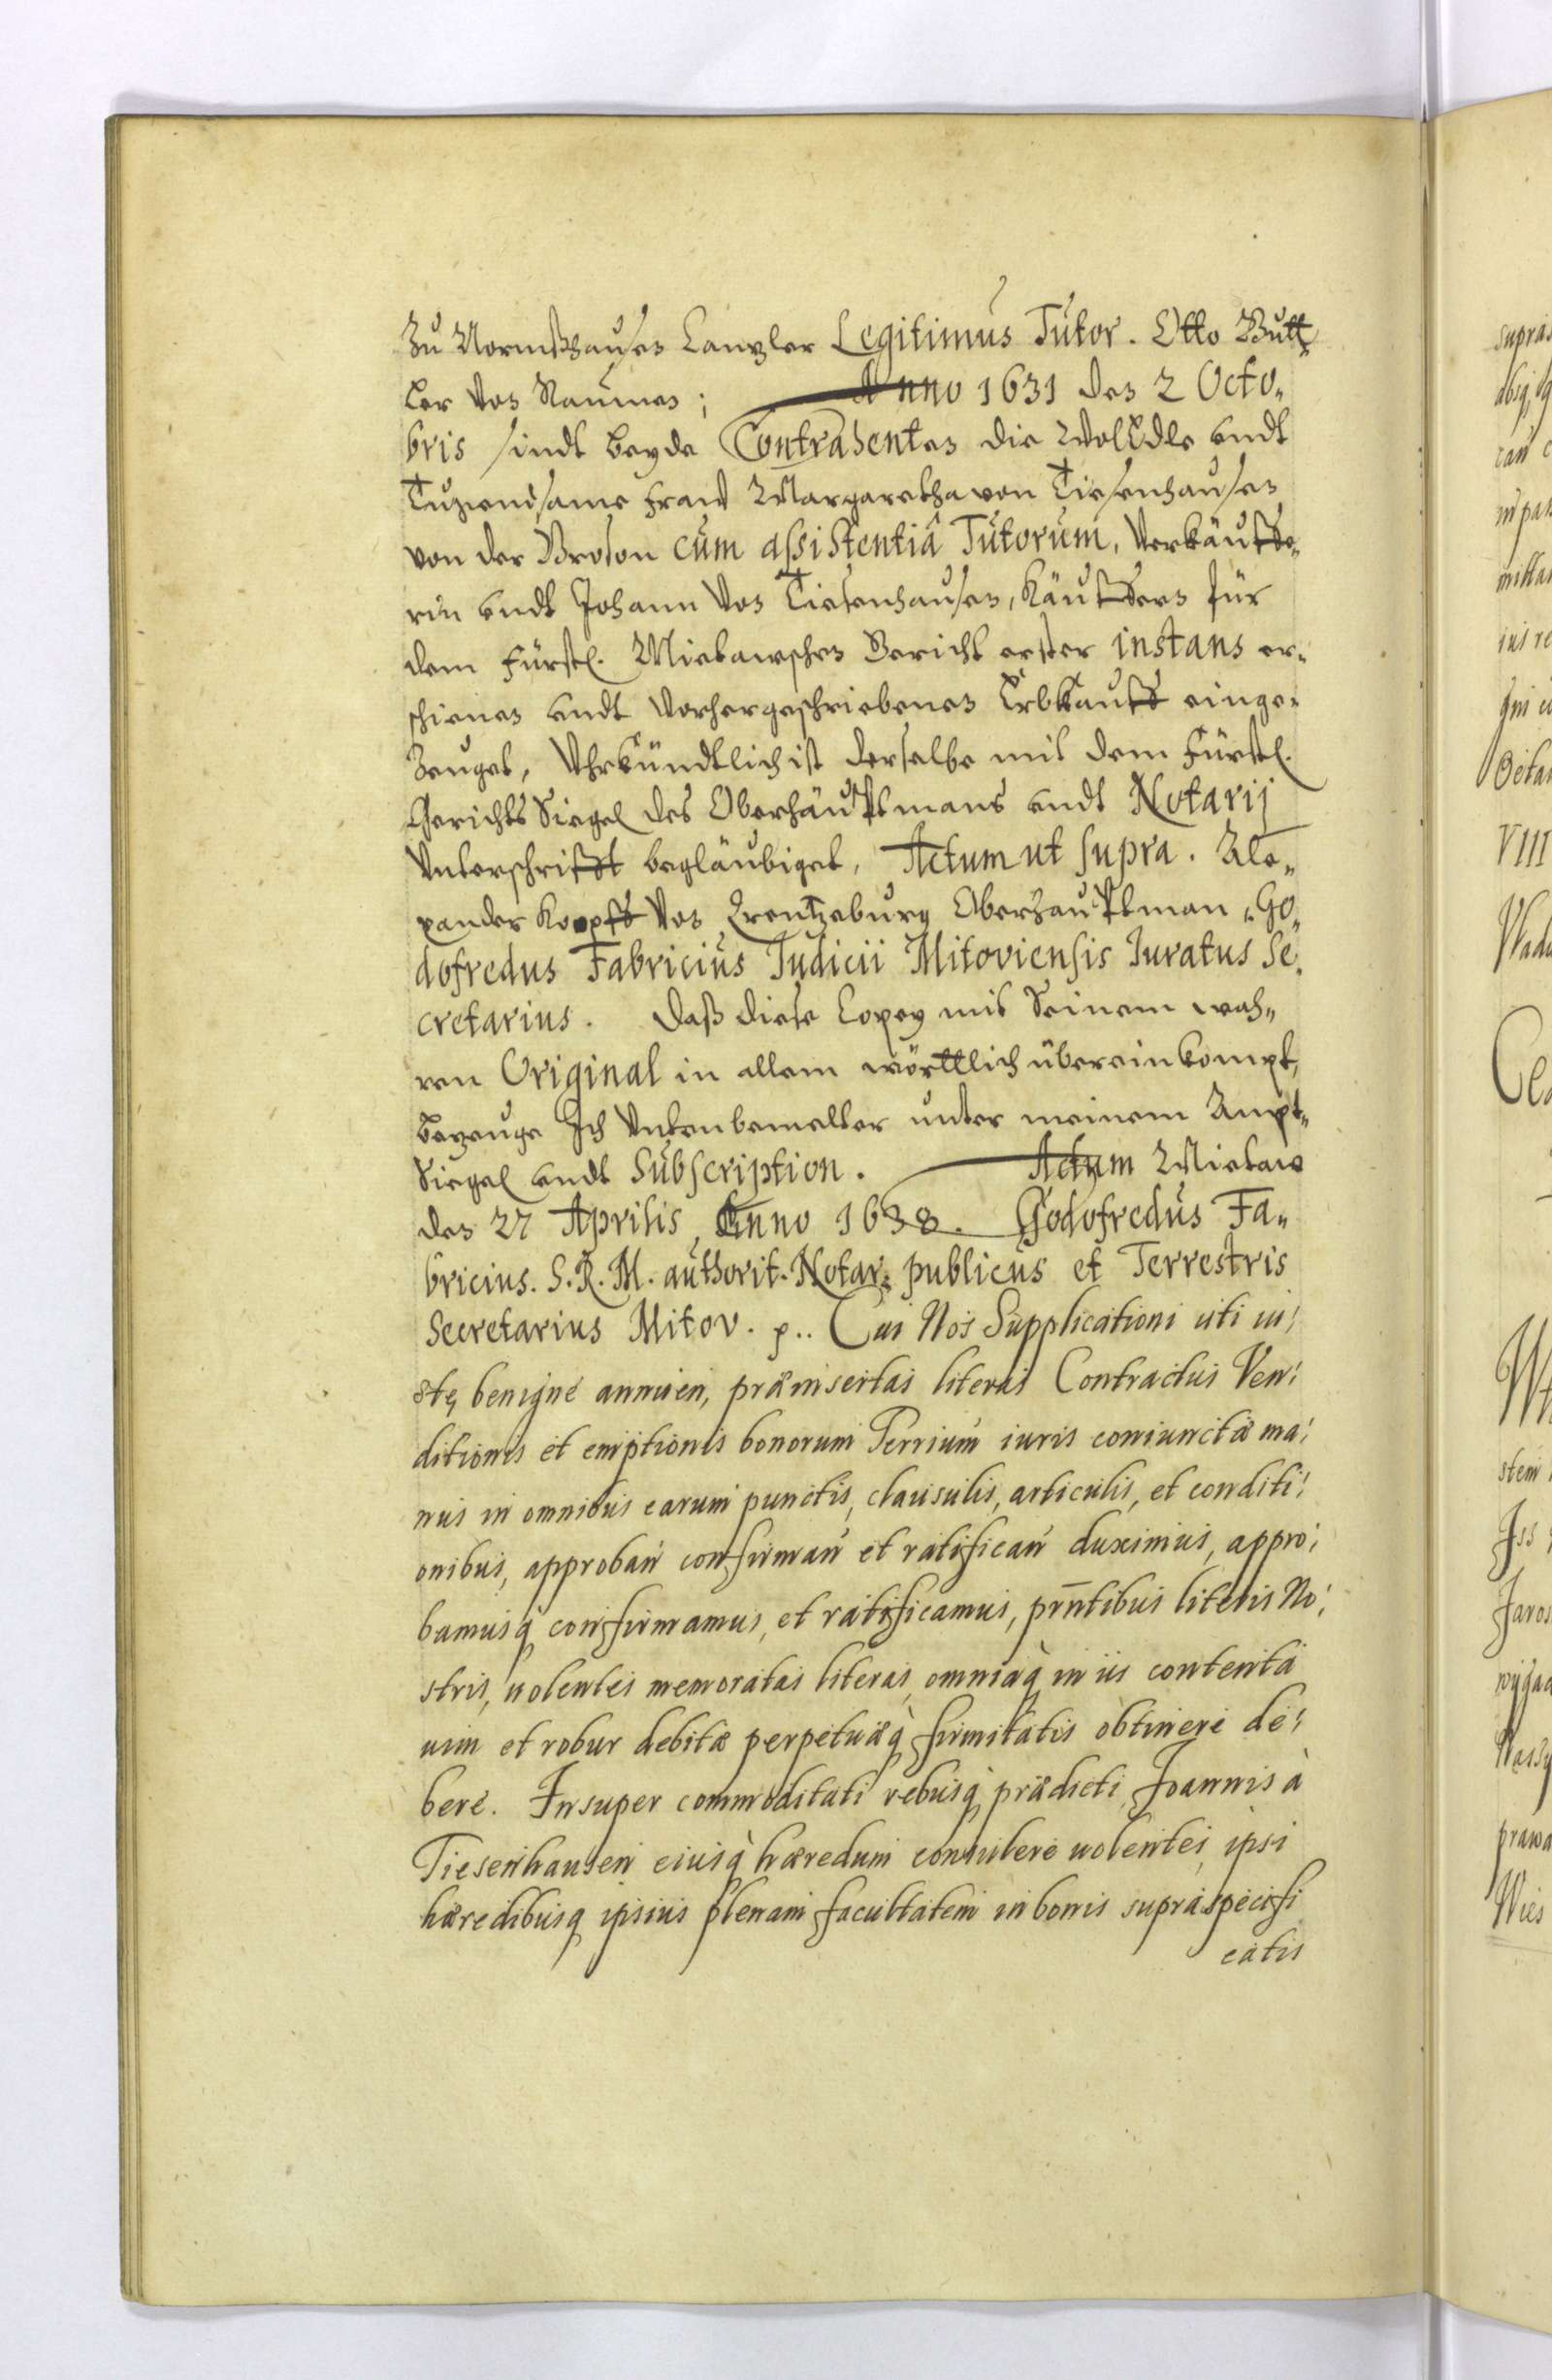 Zu Normshausen Cantzler Legitimus Tutor. Otto Butt¬
ler Von Naumen; Anno 1631 den 2 Octo¬
bris sindt beyde Contrahenten die WolEdle undt
Tugendsame Fraw Margaretha von Tiesenhausen
von der Broton cum assistentiâ Tutorum, Verkäuffe¬
rin undt Johann Von Tiesenhausen, Käuffern für
dem Fürstl. Mietawschen Gericht erster instans er¬
schienen undt Vorhergeschriebenen Erbkauff einge¬
Zeuget, Uhrkündtlich ist derselbe mit dem Fürstl.
Gerichts Siegel des Oberhäuptmans undt Notarij
Unterschrifft begläubiget, Actum ut supra. Ale¬
xander Korpff Von Creutzeburg Oberhauptman, Go¬
dofredus Fabricius Judicii Mitoviensis Iuratus Se¬
cretarius. Daß diese Copey mit Seinem wah¬
ren Original in allem wörttlich übereinkompt,
bezeuge Ich Untenbemelter unter meinem Ampt¬
Siegel undt Subscription. Actum Mietaw
den 27 Aprilis, Anno 1638. Godofredus Fa¬
bricius. S. R. M. authorit. Notar. publicus et Terrestris
Secretarius Mitov. p.. Cui Nos Supplicationi uti iu¬
stę benigne annuen, præinsertas literas Contractus Ven¬
ditionis et emptionis bonorum Perrium iuris coniunctæ ma¬
nus in omnibus earum punctis, clausulis, articulis, et conditi¬
onibus, approban confirman et ratifican duximus, appro¬
bamusq confirmamus, et ratificamus, prntibus literis No¬
stris, uolentes memoratas literas, omniaq in iis contenta
uim et robur debitæ perpetuæq firmitatis obtinere de¬
bere. Insuper commoditati rebusq prædicti Joannis à
Tiesenhausen eiusq hæredum consulere uolentes, ipsi
hæredibusq ipsius plenam facultatem in bonis supra specifi
catis